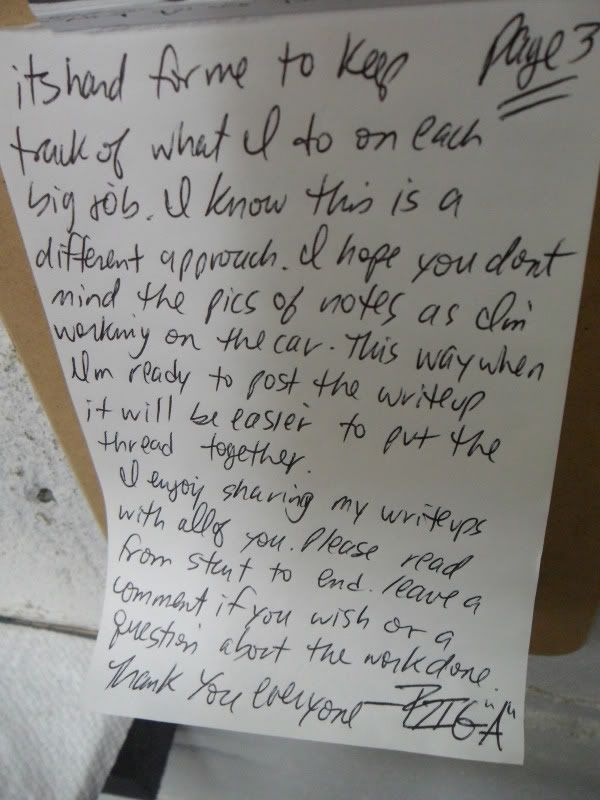 Page 3
its hard for me to keep
track of what I do on each
big job. I know this is a
different approach. I hope you dont
mind the pics of notes as I'm
working on the car. This way when
I'm ready to post the writeup
it will be easier to put the
thread together.
I enjoy sharing my writeups
with all of you. Please read
from start to end. leave a
comment if you wish or a
question about the work done.
Thank You everyone